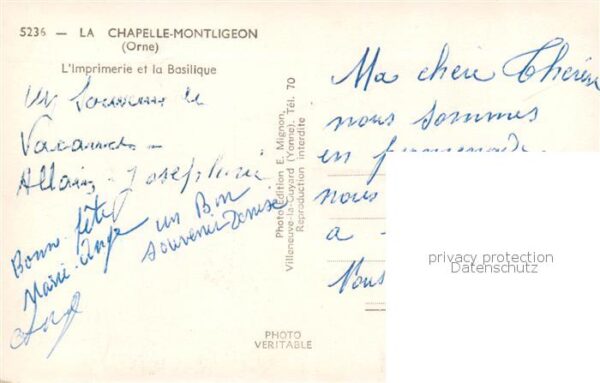 5236 — LA CHAPELLE-MONTLIGEON
(Orne)
L'Imprimerie et la Basilique
Un Souvenir de
Vacances -
Joséphine
Bonne fête
Marie-Ange
un Bon
Souvenir Denise
Photo Edition E. Mignon,
Villeneuve-la-Guyard (Yonne). Tél. 70
Reproduction interdite
PHOTO
VERITABLE
Ma chère Thérèse
nous sommes
en promenade
nous
a
Vous
privacy protection
Datenschutz